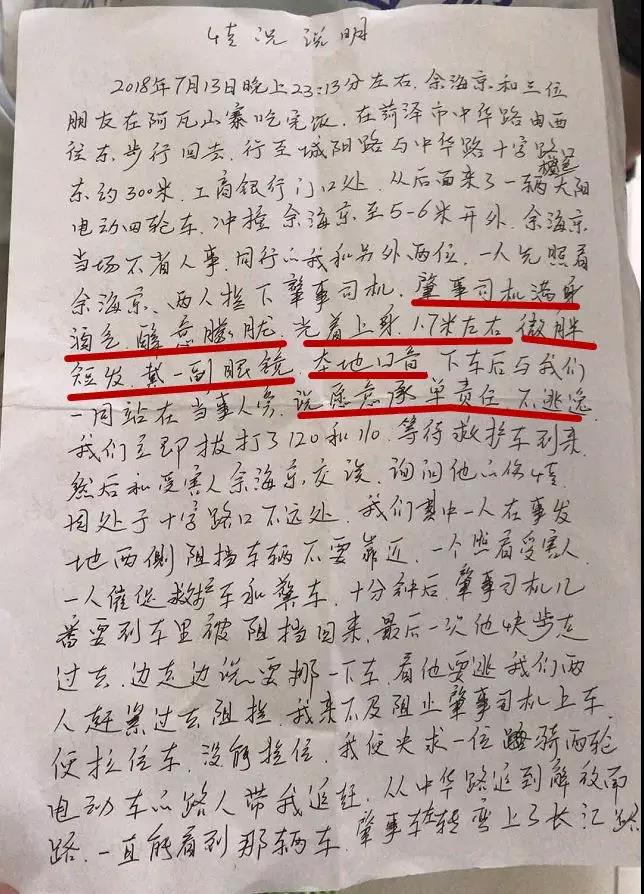 情况说明
2018年7月13日晚上23:13分左右.余海京和三位
朋友在阿瓦山寨吃完饭.在菏泽市中华路由西
往东步行回去.行至城阳路与中华路十字路口
东约300米.工商银行门口处.从后面来了一辆橙色大阳
电动四轮车.冲撞余海京至5-6米开外.余海京
当场不省人事.同行的我和另外两位.一人先照看
余海京.两人拦下肇事司机.肇事司机满身
酒气.醉意朦胧.光着上身.1.7米左右.微胖
短发.戴一副眼镜.本地口音.下车后与我们
一同站在当事人旁.说愿意承单责任.不逃逸.
我们立即拔打了120和110.等待救护车到来.
然后和受害人余海京交谈.询问他的伤情.
因处于十字路口不远处.我们其中一人在事发
地西侧阻挡车辆不要靠近.一个照看受害人.
一人催促救护车和警车.十分钟后.肇事司机几
番要到车里被阻挡回来.最后一次他快步走
过去.边走边说要挪一下车.看他要逃我们两
人赶紧过去阻拦.我来不及阻止肇事司机上车.
便拉住车.没能拦住.我便央求一位骑两轮
电动车的路人带我追赶.从中华路追到解放南
路.一直能看到那辆车.肇事车左转弯上了长江路